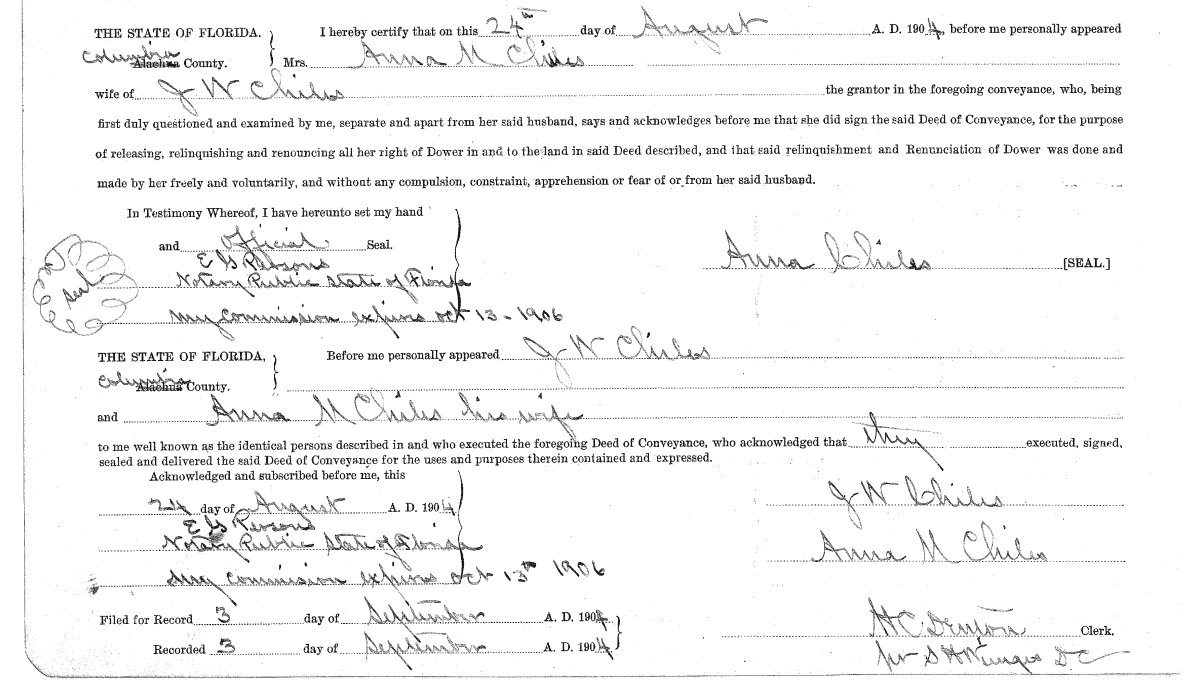 THE STATE OF FLORIDA. } I hereby certify that on this 24th day of August A. D. 1904, before me personally appeared
Columbia Alachua County. Mrs. Anna M Chiles
wife of J W Chiles the grantor in the foregoing conveyance, who, being
first duly questioned and examined by me, separate and apart from her said husband, says and acknowledges before me that she did sign the said Deed of Conveyance, for the purpose
of releasing, relinquishing and renouncing all her right of Dower in and to the land in said Deed described, and that said relinquishment and Renunciation of Dower was done and
made by her freely and voluntarily, and without any compulsion, constraint, apprehension or fear of or from her said husband.
In Testimony Whereof, I have hereunto set my hand
and official Seal.
E G Persons
Seal
Notary Public State of Florida
Anna Chiles [SEAL.]
My commission expires Oct 13-1906
THE STATE OF FLORIDA, } Before me personally appeared J W Chiles
Columbia Alachua County.
and Anna M Chiles his wife
to me well known as the identical persons described in and who executed the foregoing Deed of Conveyance, who acknowledged that they executed, signed,
sealed and delivered the said Deed of Conveyance for the uses and purposes therein contained and expressed.
Acknowledged and subscribed before me, this
24 day of August A. D. 1904
J W Chiles
E G Persons
Notary Public State of Florida
Anna M Chiles
My commission expires Oct 13th 1906
Filed for Record 3 day of September A. D. 1904
H C Denton Clerk.
Recorded 3 day of September A. D. 1904
per S H D C